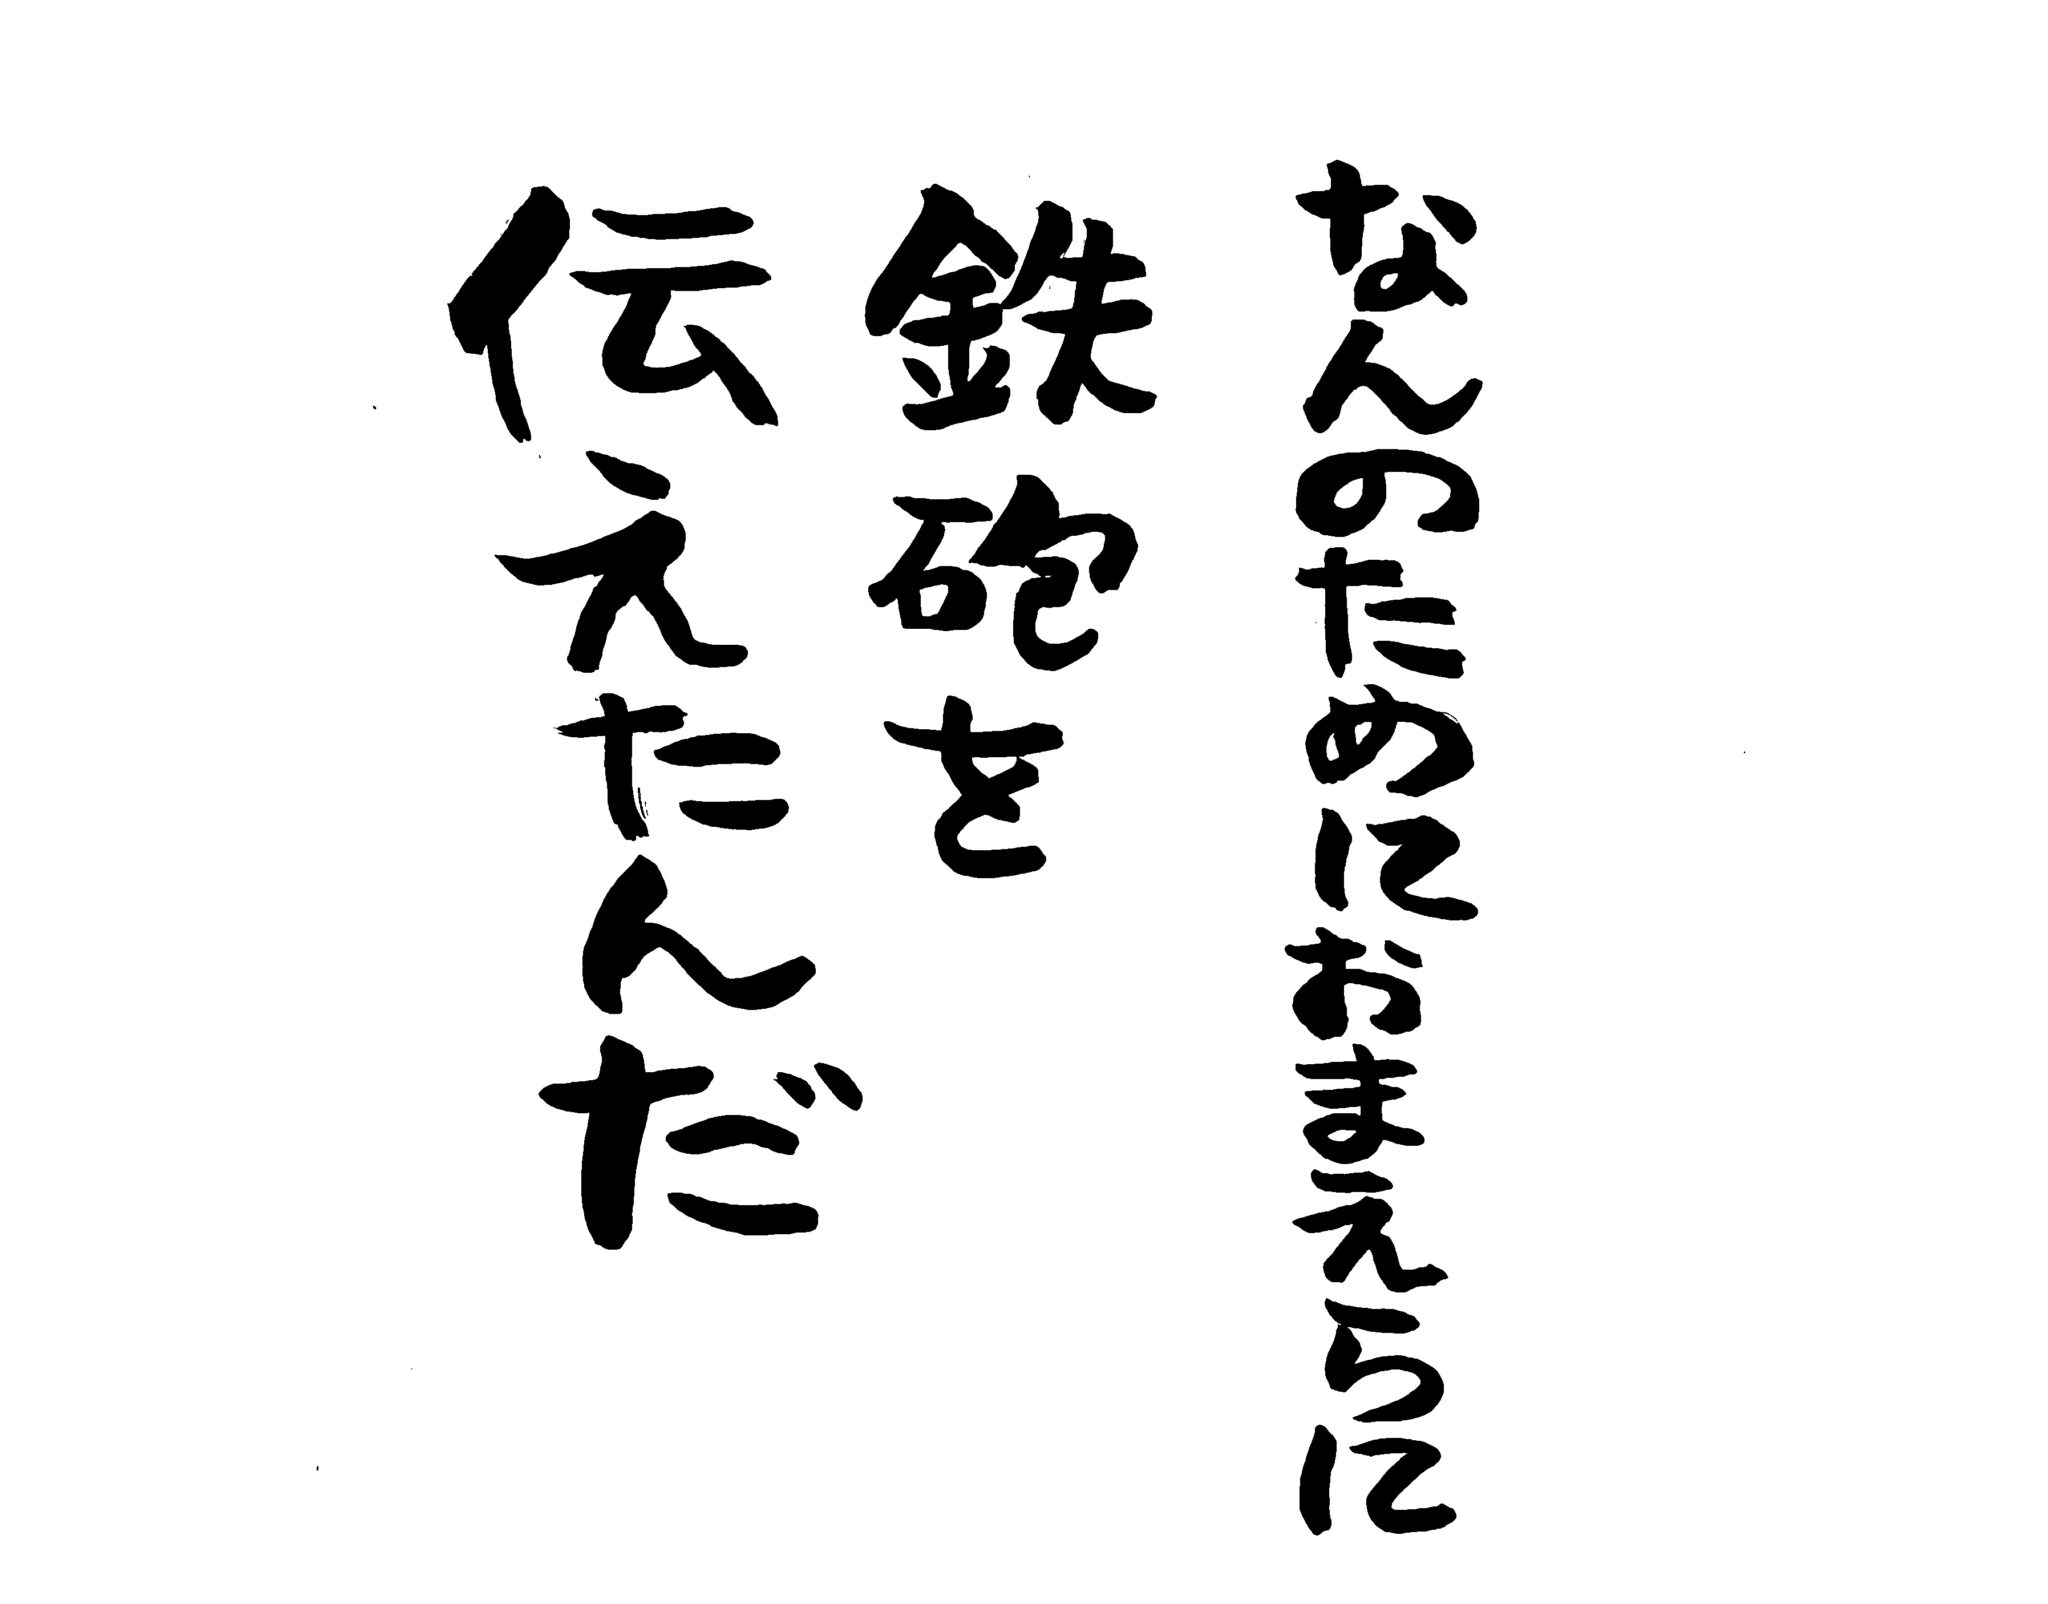 なんのためにおまえらに
鉄砲を
伝えたんだ